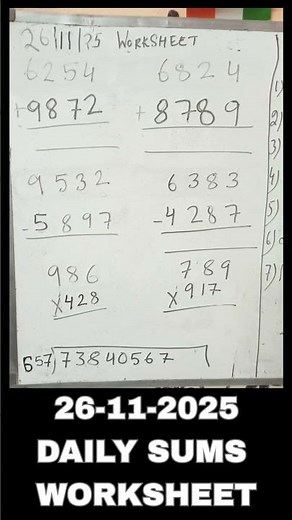 26/11/25 WORKSHEET
6254 6824
+9872 +8789
9532 6383
-5897 -4287
986 789
X428 X917
657)73840567
1)
2)
3)
4)
5)
6)
7)
26-11-2025
DAILY SUMS
WORKSHEET